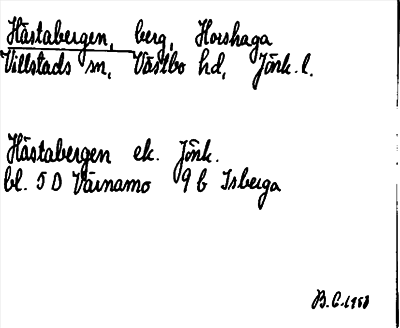 Hästabergen, berg, Horshaga
Villstads sn, Västbo hd, Jönk. l.
Hästabergen ek. Jönk.
bl. 5 D Värnamo 9 b Isberga
B. G. 1958